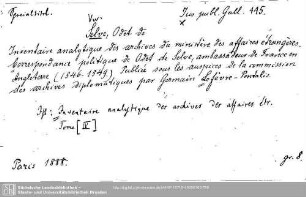 Specialtit.
Vu:
Jus publ. Gall. 495.
x
Selve, Odet de
Inventaire analytique des archives du ministère des affaires étrangères.
Correspondance politique de Odet de Selve, ambassadeur de France en
Angleterre (1546-1549) Publiée sous les auspices de la commission
des archives diplomatiques par Germain Lefèvre-Pontalis.
Inventaire analytique des archives des affaires étr.
Tome [II]
Paris 1888.
gr. 8.
Sächsische Landesbibliothek -
Staats- und Universitätsbibliothek Dresden